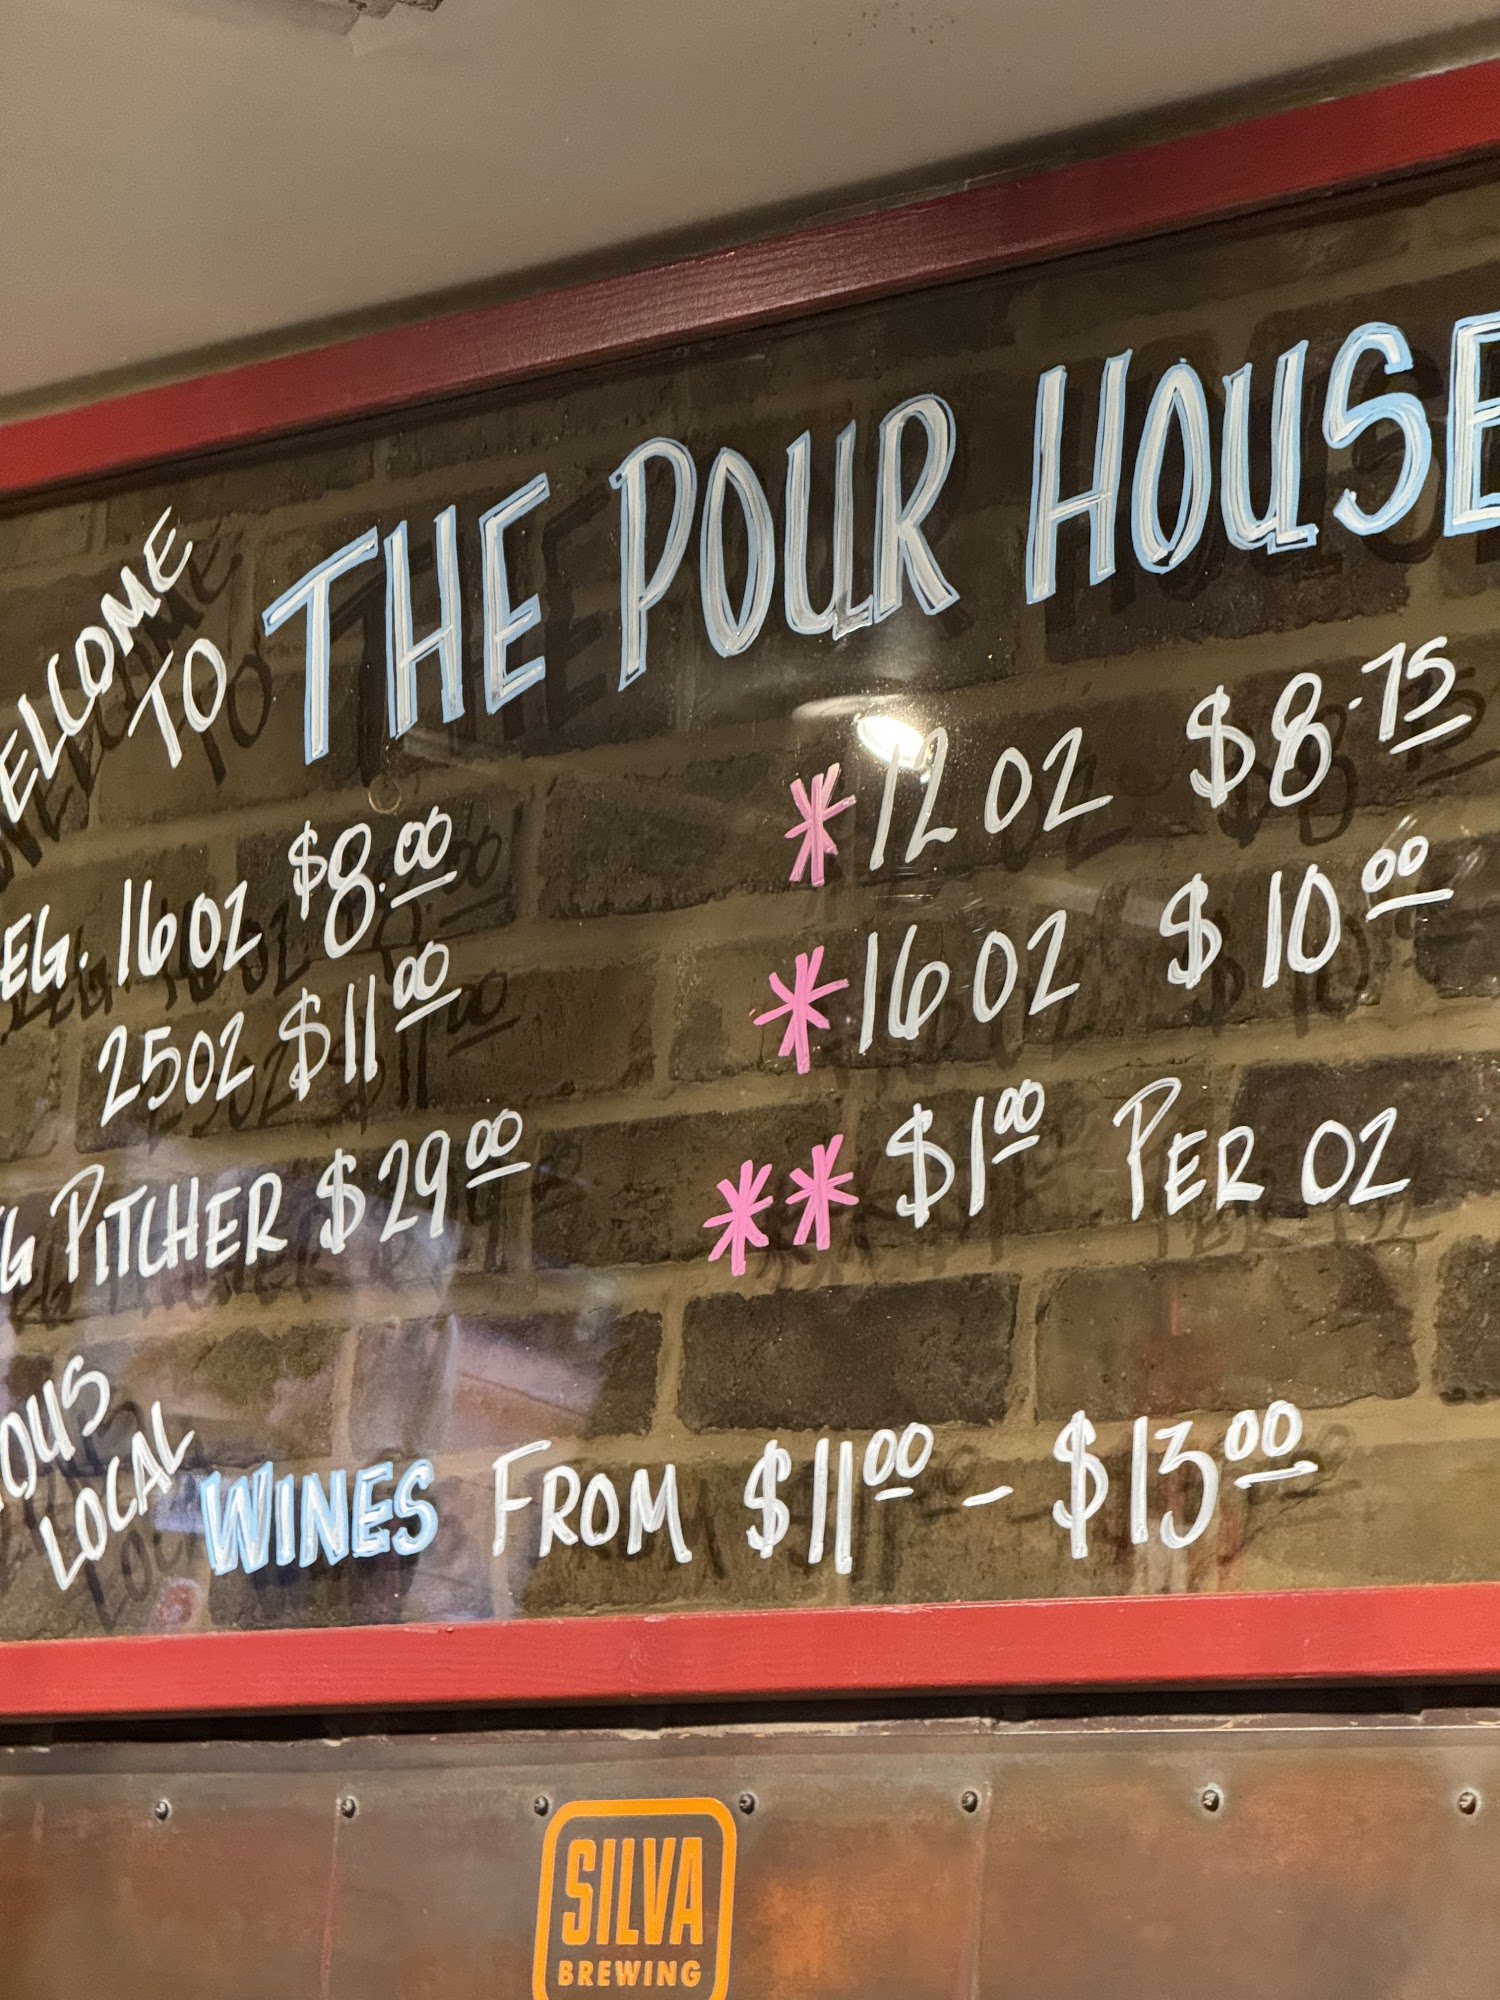 WELCOME
TO THE POUR HOUSE
EG. 16 OZ $8.00
25 OZ $11.00
G PITCHER $29.00
* 12 OZ $8.75
* 16 OZ $10.00
** $1.00 PER OZ
OUS
LOCAL WINES FROM $11.00 - $13.00
SILVA
BREWING